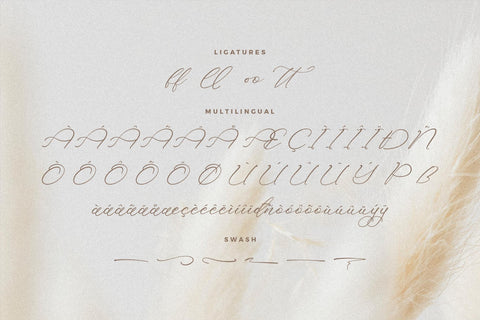 LIGATURES
ff ll oo tt
MULTILINGUAL
ÀÁÂÃÄÅÆÇÌÍÎÏÐÑ
ÒÓÔÕÖØÙÚÛÜÝÞß
àáâãäåæçèéêëìíîïðñòóôõöùúûüýÿ
SWASH